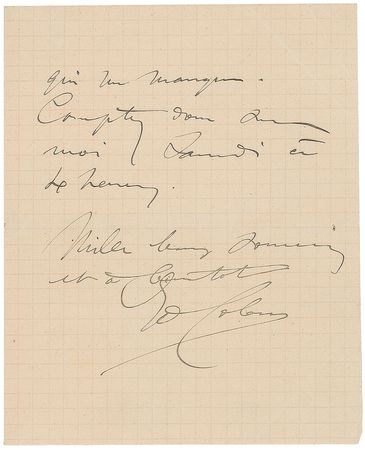 qui me manque.
Comptez donc sur
moi Samedi à
4 heures.
Mille bons souvenirs
et à bientôt
Ed Colonne